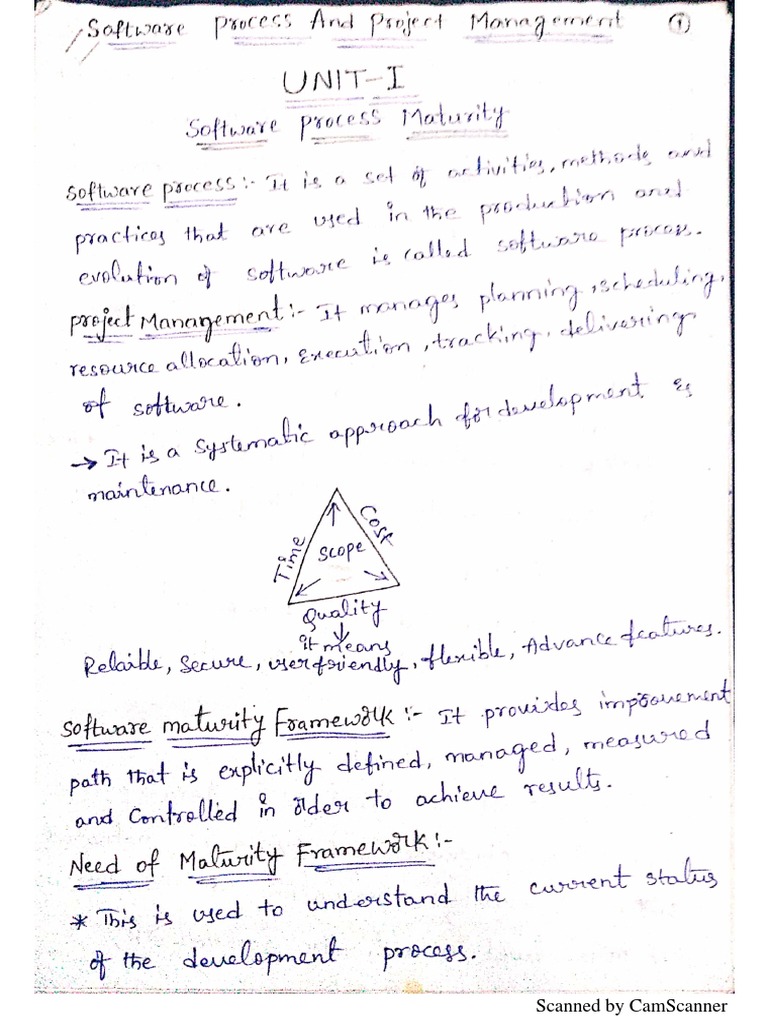 Software Process And Project Management ①
UNIT-I
Software Process Maturity
Software process:- It is a set of activities, methods and
practices that are used in the production and
evolution of software is called software process.
Project Management:- It manages planning, scheduling,
resource allocation, Execution, tracking, delivering
of software.
→ It is a systematic approach for development &
maintenance.
Time
Cost
Scope
Quality
it means
Relaible, Secure, userfriendly, flexible, Advance features.
Software maturity Framework:- It provides improvement
path that is explicitly defined, managed, measured
and Controlled in order to achieve results.
Need of Maturity Framework:-
* This is used to understand the current status
of the development process.
Scanned by CamScanner